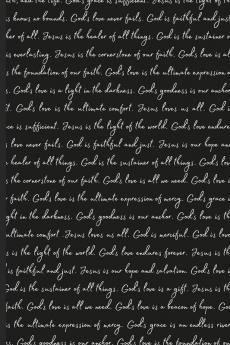 God's grace is sufficient. Jesus is the light of
knows no bounds. God's love never fails. God is faithful and just
of all. Jesus is the healer of all things. God is the sustainer o
is everlasting. Jesus is the cornerstone of our faith. God's love is al
the foundation of our faith. God's love is the ultimate expression o
s. God's love is a light in the darkness. God's goodness is our ancho
t. God's love is the ultimate comfort. Jesus loves us all. God
ce is sufficient. Jesus is the light of the world. God's love endure
love never fails. God is faithful and just. Jesus is our hope an
healer of all things. God is the sustainer of all things. God's lov
the cornerstone of our faith. God's love is all we need. God's love i
faith. God's love is the ultimate expression of mercy. God's grace
ght in the darkness. God's goodness is our anchor. God's love is th
ultimate comfort. Jesus loves us all. God is merciful. God is lov
is the light of the world. God's love endures forever. Jesus is th
is faithful and just. Jesus is our hope and salvation. God's love
God is the sustainer of all things. God's love is a gift. Jesus is th
faith. God's love is all we need. God's love is a beacon of hope. Go
is the ultimate expression of mercy. God's grace is an endless river
s. God's goodness is our anchor. God's love is the foundation of ou